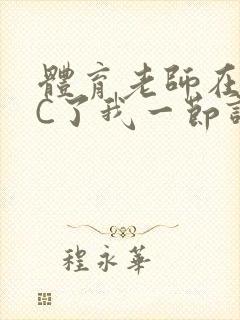 體育老師在
C了我一節
程永華